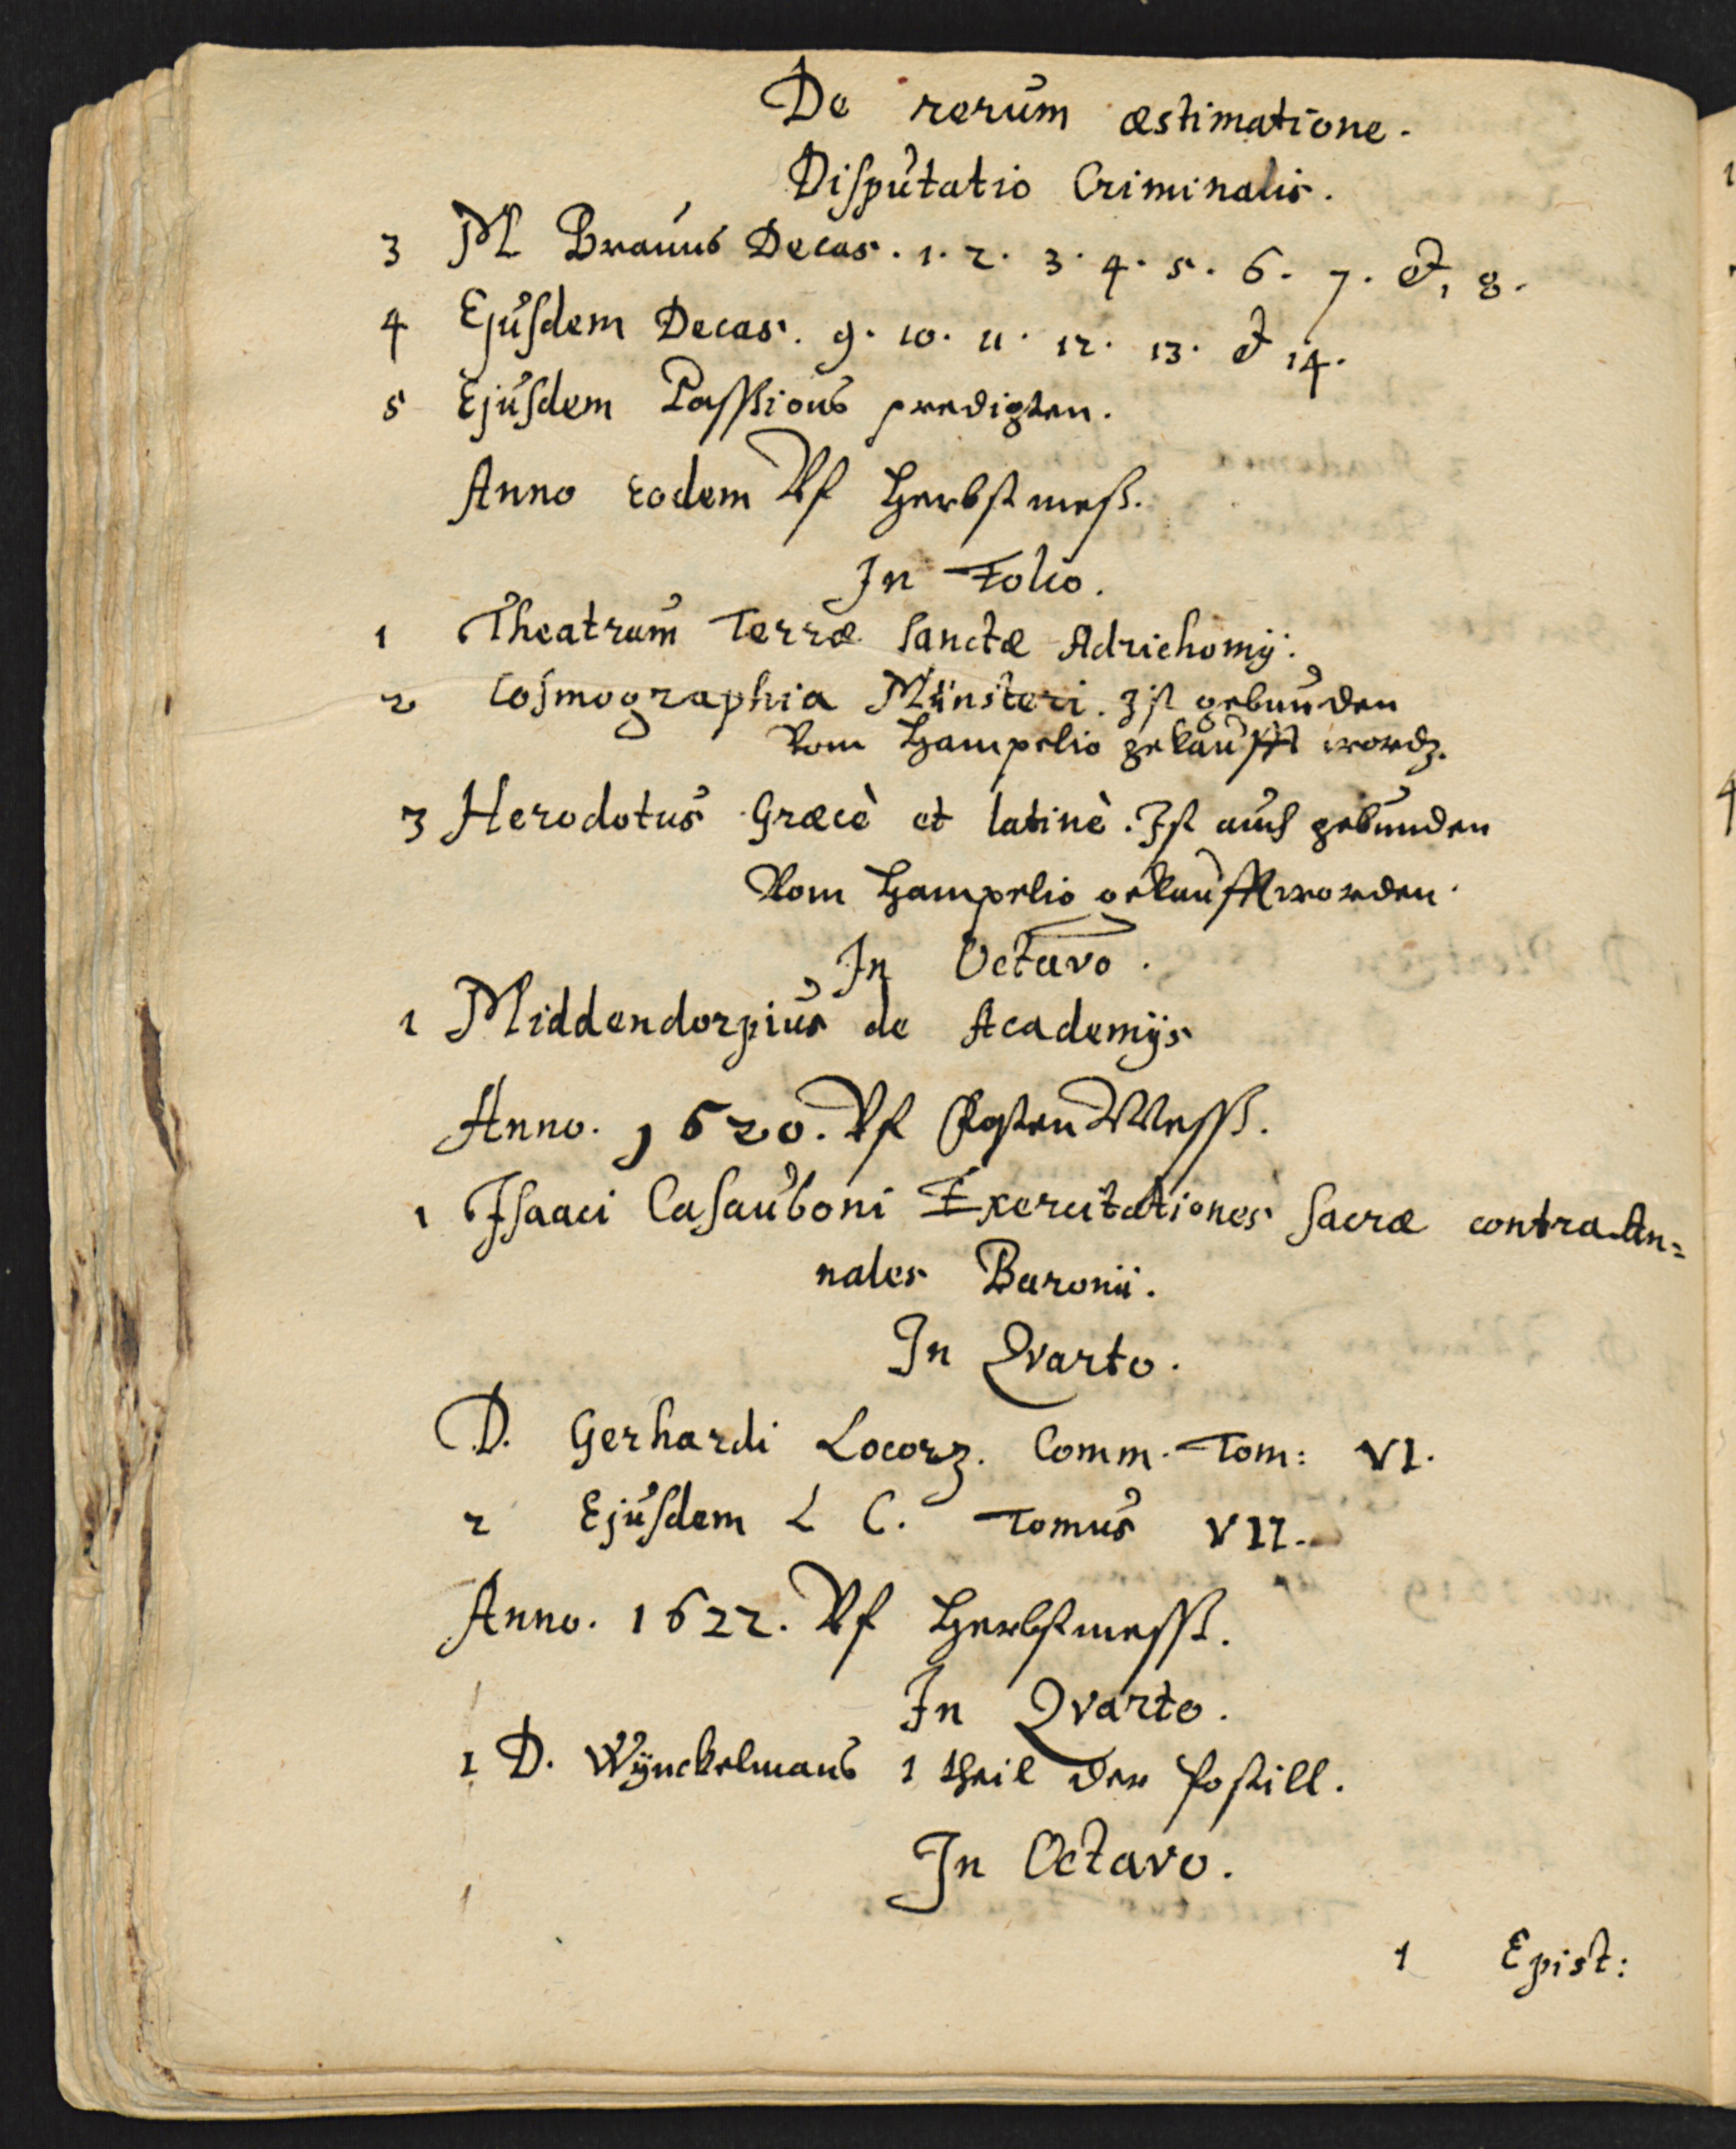 De rerum æstimatione.
Disputatio Criminalis.
3 M Brauns Decas. 1. 2. 3. 4. 5. 6. 7. et, 8.
4 Ejusdem Decas. 9. 10. 11. 12. 13. et 14.
5 Ejusdem Passions predigten.
Anno eodem Vf Herbstmeß.
In Folio.
1 Theatrum Terræ Sanctæ Adrichomij.
2 Cosmographia Münsteri. Ist gebunden
Vom Hampelio gekaufft word.
3 Herodotus Græcè et latinè. Ist auch gebunden
Vom Hampelio gekaufft worden.
In Octavo.
1 Middendorpius de Academijs
Anno. 1620. Vf Fasten Mess.
1 Isaaci Casauboni Exercitationes sacræ contra An=
nales Baronii.
In Qvarto.
D. Gerhardi Locorꝝ. Comm. Tom: VI.
2 Ejusdem L C. Tomus VII.
Anno. 1622. Vf Herbstmess.
In Qvarto.
1 D. Wÿnckelmans 1 theil der Postill.
In Octavo.
1 Epist: